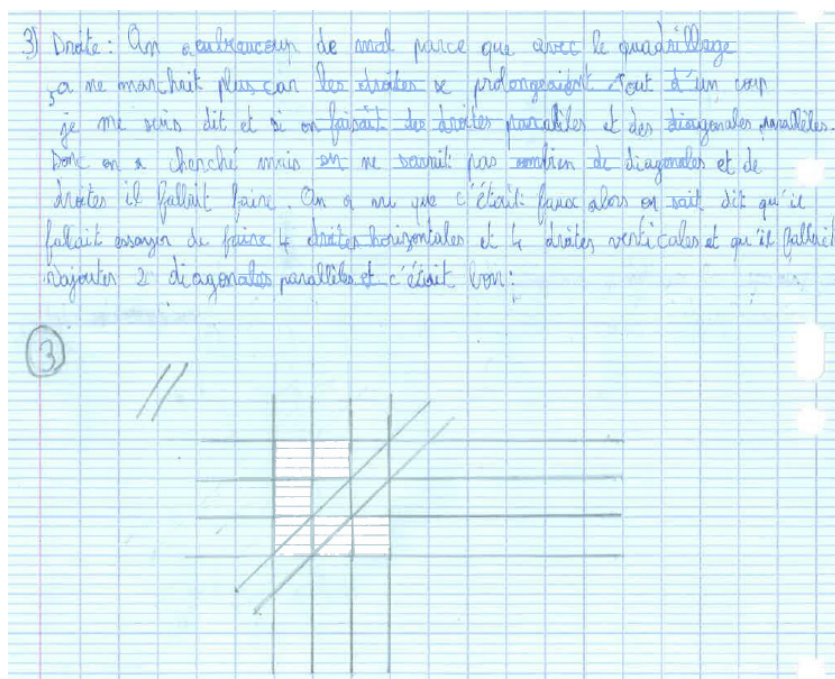 3) Droite : On a eu beaucoup de mal parce que avec le quadrillage
ça ne marchait plus car les droites se prolongeaient. Tout d'un coup
je me suis dit et si on faisait des droites paralléles et des diagonales parallèles.
Donc on a cherché mais on ne savait pas combien de diagonales et de
droites il fallait faire. On a vu que c'était faux alors on sait dit qu'il
fallait essayer de faire 4 droites horizontales et 4 droites verticales et qu'il fallait
rajouter 2 diagonales parallèles et c'était bon :
3
//